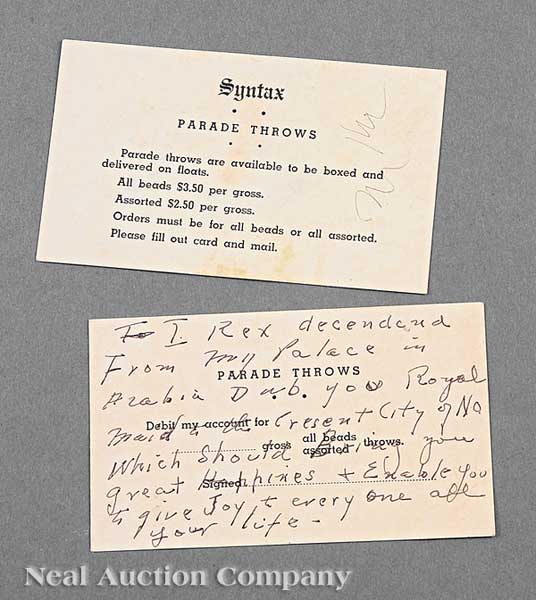 Syntax
PARADE THROWS
Parade throws are available to be boxed and
delivered on floats.
All beads $3.50 per gross.
Assorted $2.50 per gross.
Orders must be for all beads or all assorted.
Please fill out card and mail.
To I Rex decendend
From my Palace in
PARADE THROWS
Arabia Dub you Royal
Debit my account for
maid the Cresent City of No
gross all beads assorted throws.
which should you
Signed
great Happines + Enable you
to give Joy to every one all
your life -
Neal Auction Company